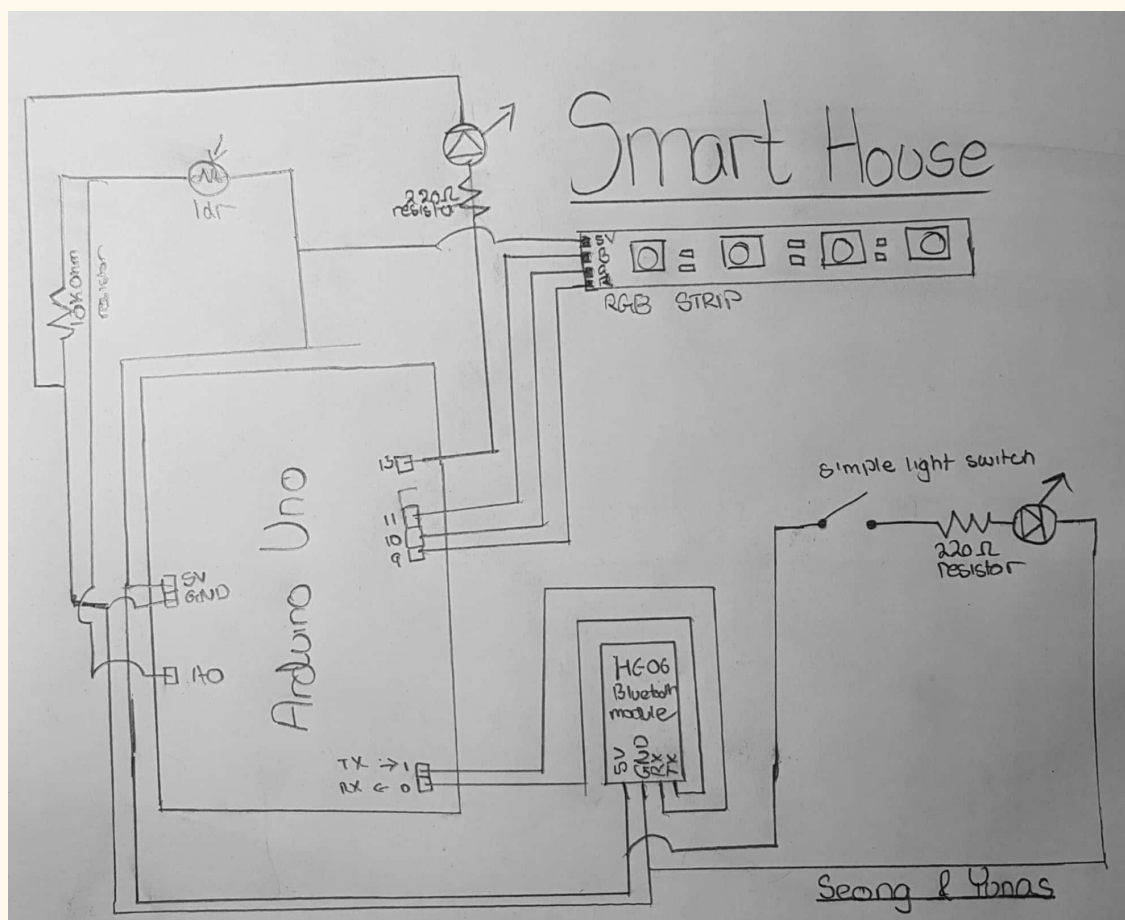 Smart House
220Ω
resistor
ldr
10K Ohm
resistor
5V
G
RGB STRIP
13
11
10
9
Arduino Uno
5V
GND
A0
TX → 1
RX ← 0
simple light switch
220Ω
resistor
HC-06
Bluetooth
module
5V
GND
RX
TX
Seong & Yonas